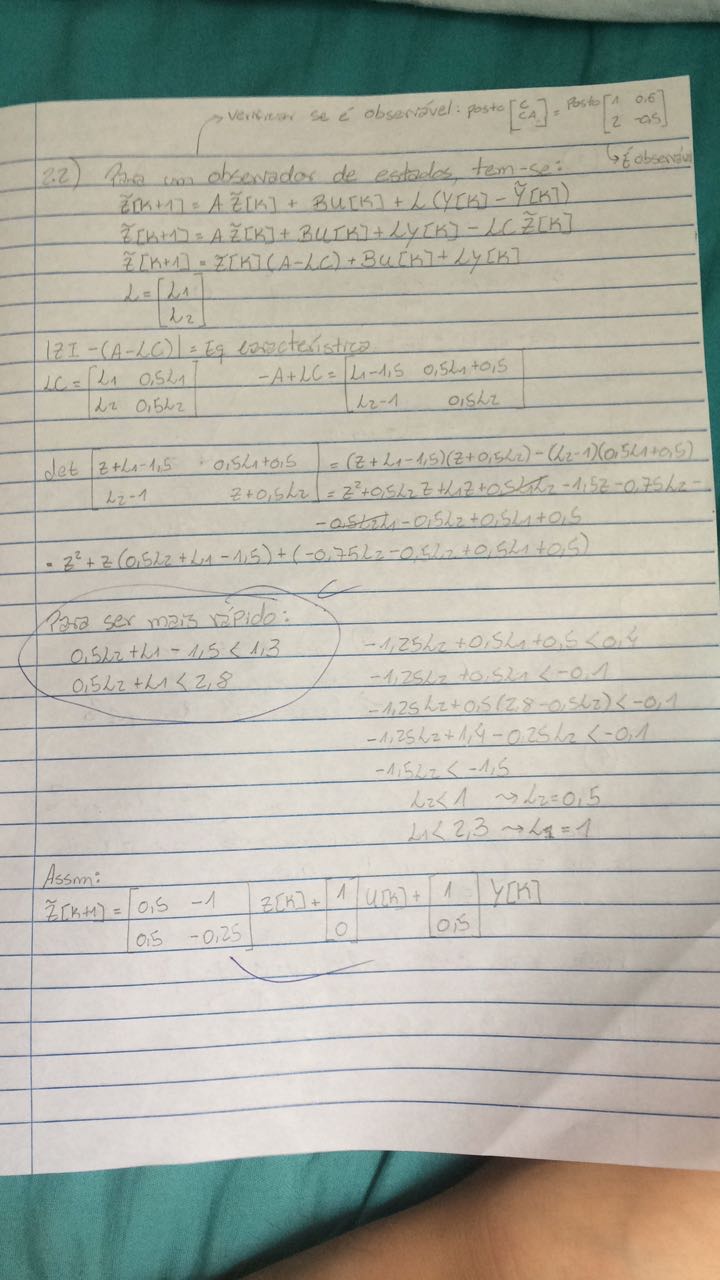 verificar se é observável: posto [C CA] = posto [1 0,6 2 -0,5]
↳ É observáv
2.2) Para um observador de estados, tem-se:
z̃[k+1] = A z̃[k] + BU[k] + L(Y[k] - Ỹ[k])
z̃[k+1] = A z̃[k] + BU[k] + LY[k] - LC z̃[k]
z̃[k+1] = z̃[k](A-LC) + BU[k] + LY[k]
L = [L1
L2]
|ZI - (A-LC)| = Eq característica
LC = [L1 0,5L1 -A+LC = [L1-1,5 0,5L1+0,5
L2 0,5L2] L2-1 0,5L2]
det [z+L1-1,5 0,5L1+0,5 = (z+L1-1,5)(z+0,5L2)-(L2-1)(0,5L1+0,5)
L2-1 z+0,5L2] = z²+0,5L2z+L1z+0,5L1L2-1,5z-0,75L2-
-0,5L2L1-0,5L2+0,5L1+0,5
= z²+z(0,5L2+L1-1,5)+(-0,75L2-0,5L2+0,5L1+0,5)
Para ser mais rápido:
0,5L2+L1-1,5<1,3
0,5L2+L1<2,8
-1,25L2+0,5L1+0,5<0,4
-1,25L2+0,5L1<-0,1
-1,25L2+0,5(2,8-0,5L2)<-0,1
-1,25L2+1,4-0,25L2<-0,1
-1,5L2<-1,5
L2<1 ⇝ L2=0,5
L1<2,3 ⇝ L1=1
Assim:
z̃[k+1] = [0,5 -1 z[k] + [1 U[k] + [1 Y[k]
0,5 -0,25] 0] 0,5]